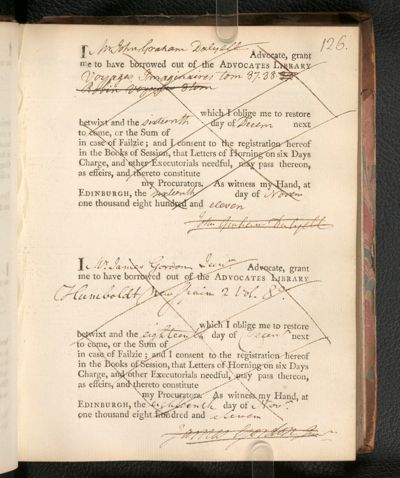 126.
I Mr John Graham Dalyell Advocate, grant
me to have borrowed out of the ADVOCATES LIBRARY
Voyages Imaginaires tom 37.38
Robin voyages 3 tom
which I oblige me to restore
betwixt and the sixteenth day of Decem next
to come, or the Sum of
in case of Failzie; and I consent to the registration hereof
in the Books of Session, that Letters of Horning on six Days
Charge, and other Executorials needful, may pass thereon,
as effeirs, and thereto constitute
my Procurators. As witness my Hand, at
EDINBURGH, the sixteenth day of Novem
one thousand eight hundred and eleven
John Graham Dalyell
I Mr James Gordon Junr Advocate, grant
me to have borrowed out of the ADVOCATES LIBRARY
Humboldt New Spain 2 Vol. 8º.
which I oblige me to restore
betwixt and the eighteenth day of Decemr next
to come, or the Sum of
in case of Failzie; and I consent to the registration hereof
in the Books of Session, that Letters of Horning on six Days
Charge, and other Executorials needful, may pass thereon,
as effeirs, and thereto constitute
my Procurators. As witness my Hand, at
EDINBURGH, the eighteenth day of Novr
one thousand eight hundred and eleven
James Gordon Jr